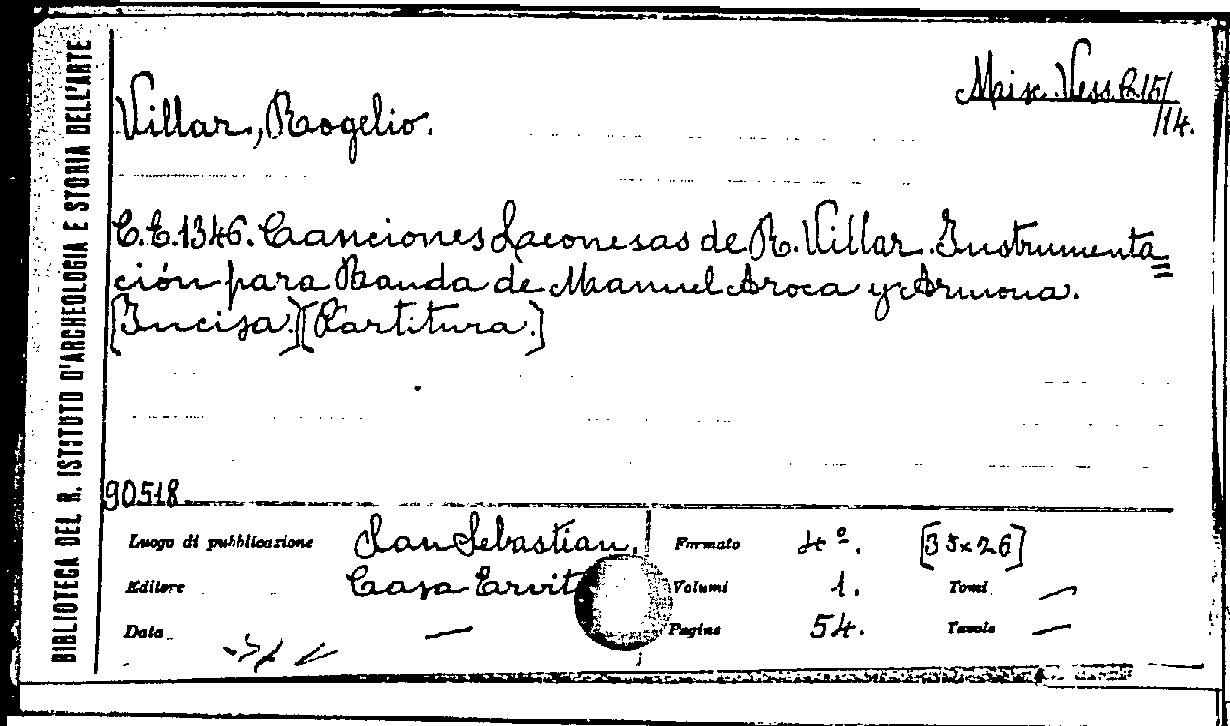 BIBLIOTECA DEL R. ISTITUTO D'ARCHEOLOGIA E STORIA DELL'ARTE
Misc. Vess. C 15/
/14.
Villar, Rogelio.
C.E.1346. Canciones Leonesas de R. Villar. Instrumenta=
ción para Banda de Manuel Aroca y Armona.
[Incisa.][Partitura.]
90518
Luogo di pubblicazione San Sebastian, Formato 4º. [35×26]
Editore Casa Ervit Volumi 1. Tomi —
Data — Pagine 54. Tavole —